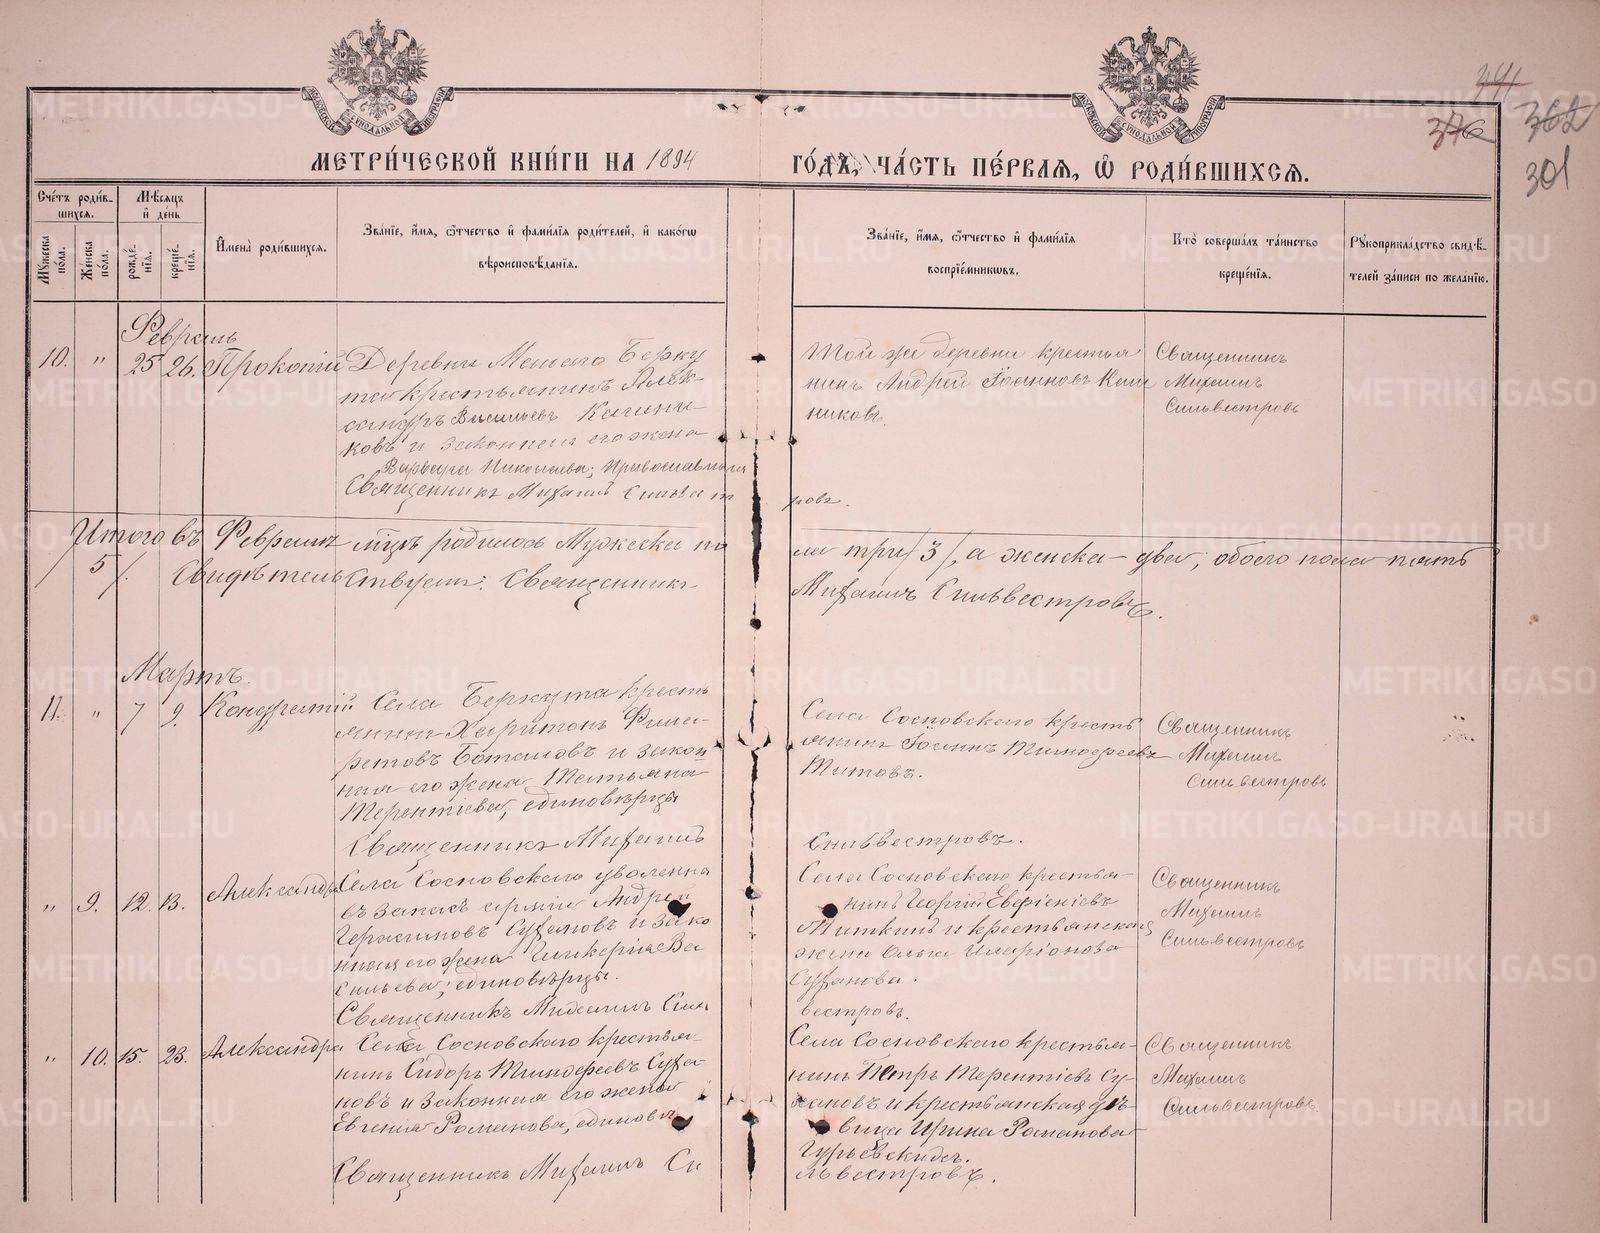 МЕТРИ́ЧЕСКОЙ КНИ́ГИ НА 1894 ГО́ДЪ, ЧА́СТЬ ПЕ́РВАЯ, Ѽ РОДИ́ВШИХСЯ.
376
362
301
МОСКОВСКОЙ СѴНОДАЛЬНОЙ ТИПОГРАФІИ
МОСКОВСКОЙ СѴНОДАЛЬНОЙ ТИПОГРАФІИ
Сче́тъ роди́вшихся.
Му́жеска по́ла.
Же́нска по́ла.
Мѣ́сяцъ и҆ де́нь
рожде́нїя.
креще́нїя.
И҆мена̀ роди́вшихся.
Зва́нїе, и҆́мя, ѻ҆́тчество и҆ фами́лїя роди́телей, и҆ како́гѡ
вѣроисповѣ́данїя.
Зва́нїе, и҆́мя, ѻ҆́тчество и҆ фами́лїя
воспрїе́мниковъ.
Кто̀ соверша́лъ та́инство
креще́нїя.
Рꙋкоприкла́дство свидѣ́-
телей за́писи по жела́нїю.
Февраль
10. " 25 26. Прокопій
Деревни Малаго Берку
та крестьянинъ Алек-
сандръ Васильевъ Калини-
ковъ и законная его жена
Варвара Николаева; Православныя
Священникъ Михаилъ Сильвест
ровъ.
Той же деревни крестья
нинъ Андрей Іоанновъ Кали
никовъ.
Священникъ
Михаилъ
Сильвестровъ
Итого въ Февралѣ мцѣ родилось Мужеска по
ла три /3/, а женска - два, обоего пола пять
/5/. Свидѣтельствуетъ: Священникъ
Михаилъ Сильвестровъ.
Мартъ.
11. " 7 9. Кондратій
Села Беркута кресть
янинъ Харитонъ Фила-
ретовъ Боталовъ и закон
ная его жена Татьяна
Терентіева, единовѣрцы
Священникъ Михаилъ
Сильвестровъ.
Села Сосновскаго кресть
янинъ Іоаннъ Тимоѳеевъ
Титовъ.
Священникъ
Михаилъ
Сильвестровъ
" 9. 12. 13. Александра
Села Сосновскаго уволенна
въ запасъ арміи Андрей
Герасимовъ Сухановъ и зако
нная его жена Гликерія Ва
сильева; единовѣрцы.
Священникъ Михаилъ Сил
вестровъ.
Села Сосновскаго крестья-
нинъ Георгій Евфиміевъ
Миткинъ и крестьянская
жена Ольга Иларіонова
Суханова.
Священникъ
Михаилъ
Сильвестровъ
" 10. 15. 23. Александра
Села Сосновскаго крестья-
нинъ Сидоръ Тимоѳеевъ Суха-
новъ и законная его жена
Евгенія Романова, единовѣр
Священникъ Михаилъ Си
львестровъ.
Села Сосновскаго крестья-
нинъ Петръ Терентіевъ Су-
хановъ и крестьянская дѣ-
вица Ирина Романова
Гурьевскихъ.
Священникъ
Михаилъ
Сильвестровъ
METRIKI.GASO-URAL.RU